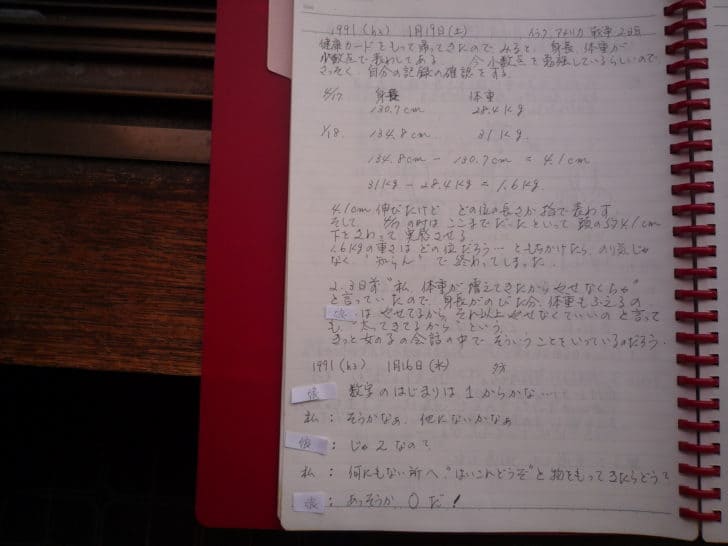 1991 (h3) 1月19日(土) イラク、アメリカ 戦争2日目
健康カードをもって帰ってきたので、みると、身長、体重が
小数点で表わしてある。 今 小数点を勉強しているらしいので、
さっそく 自分の記録の確認をする。
身長 体重
130.7cm 28.4kg
1/18. 134.8cm 31kg.
134.8cm - 130.7cm = 4.1cm
31kg - 28.4kg = 1.6kg.
4.1cm 伸びたけど どの位の長さか 指で表わす
そして の時は ここまでだったといって 頭の 約4.1cm
下をさわって 実感させる
1.6kgの重さは どの位だろう… ともちかけたら、のり気じゃ
なく "知らん" で 終わってしまった.
2.3日前 "私、体重が増えてきたから やせなくちゃ"
と言っていたので、身長がのびた分、体重もふえるの
娘 は やせてるから それ以上 やせなくていいの と言って
も "太ってきてるから" という.
きっと女の子の会話の中で そういうことをいっているのだろう.
1991 (h3) 1月16日(水) 夕方
娘 数字のはじまりは 1からかな…
私: そうかなぁ. 他にないかなぁ
娘: じゃ 2なの?
私: 何にもない所へ "はいこれどうぞ" と 物をもってきたらどう?
娘: あっそうか. 0だ!